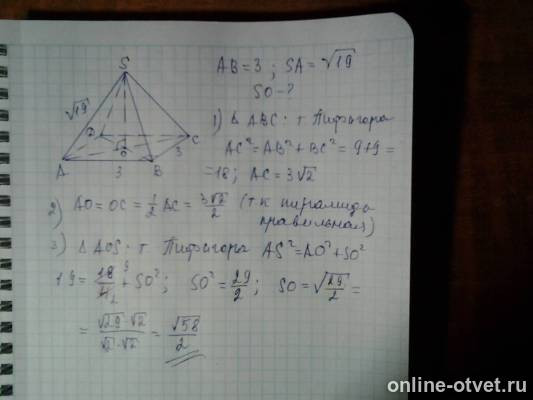 S
√19
D
C
O
3
A
3
B
AB = 3 ; SA = √19
SO - ?
1) Δ ABC · т Пифагора
AC² = AB² + BC² = 9+9 =
= 18 ; AC = 3√2
2) AO = OC = 1/2 AC = 3√2/2 (т к пирамида
правильная)
3) Δ AOS · т Пифагора AS² = AO² + SO²
19 = 18/4 + SO² ; SO² = 29/2 ; SO = √29/2 =
9
2
= √29 · √2 / √2 · √2 = √58/2
online-otvet.ru